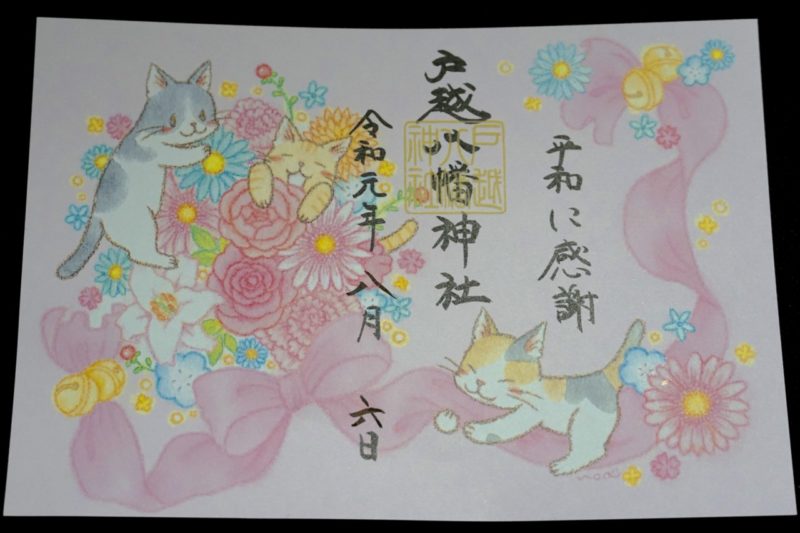 平和に感謝
戸越八幡神社
戸越
八幡
神社
令和元年八月六日